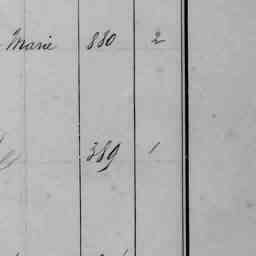 Marie 880 2
389 1